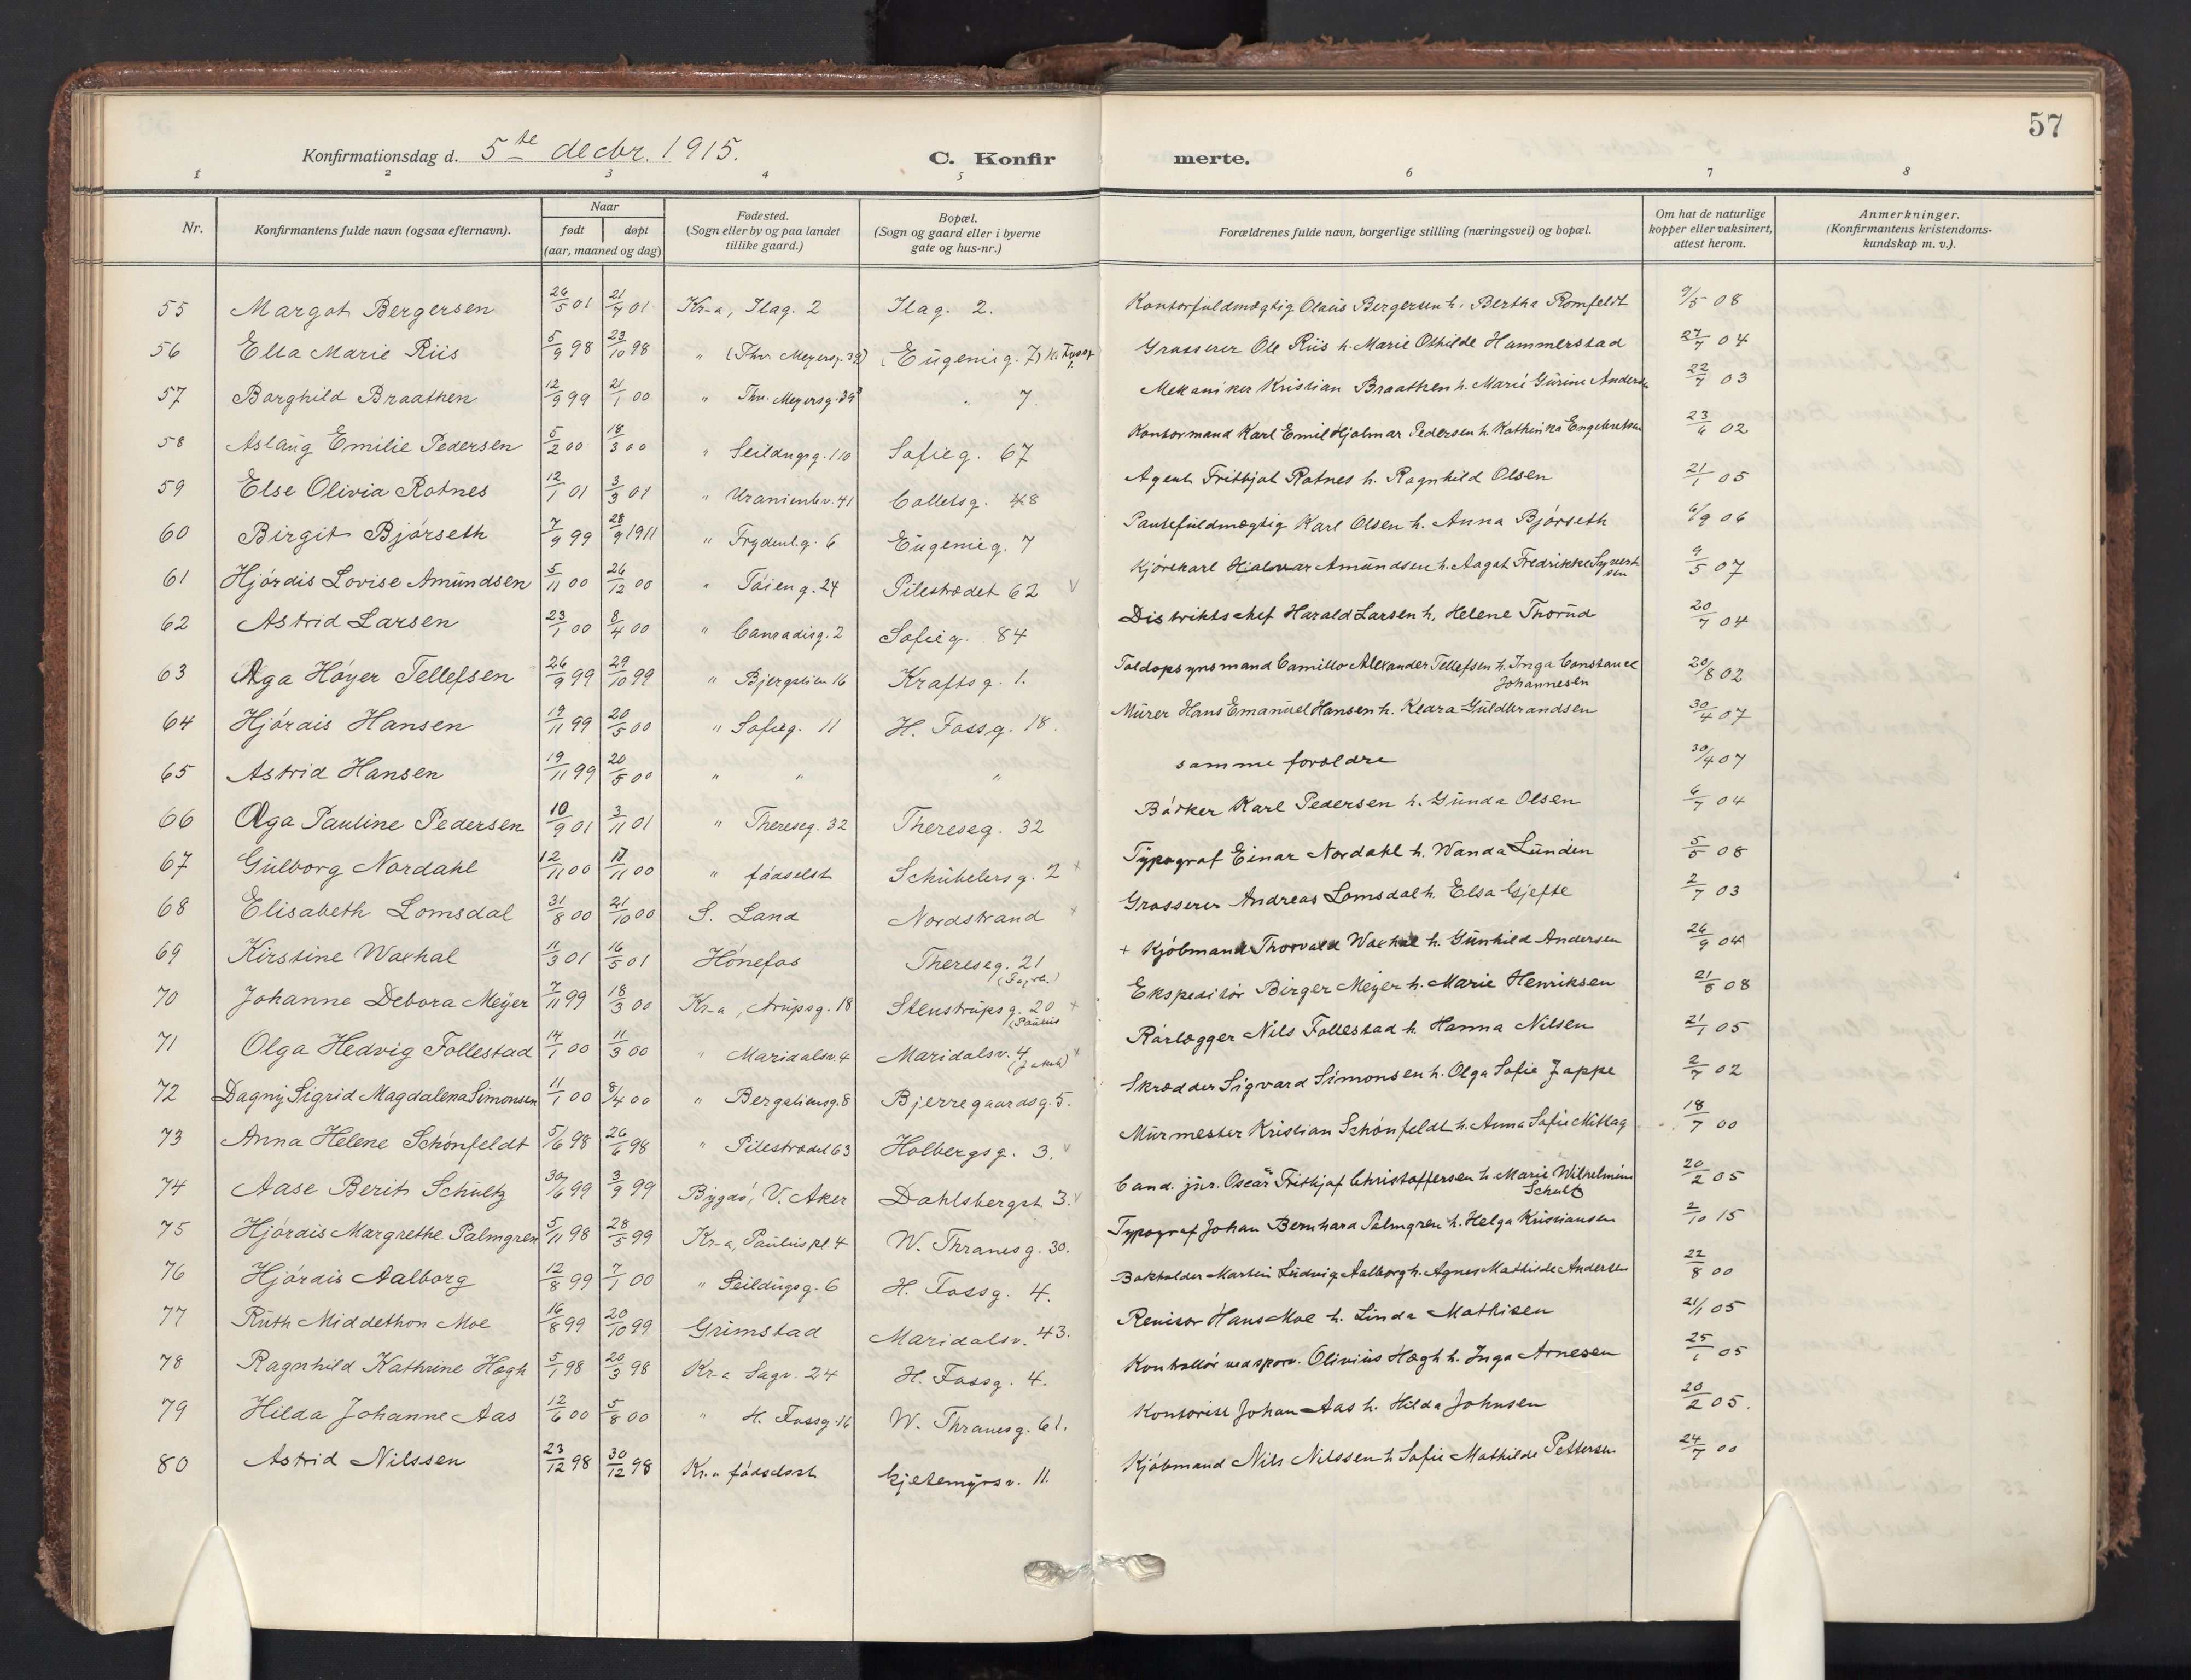 57
Konfirmationsdag d. 5te decbr. 1915. C. Konfir merte.
1 2 3 4 5 6 7 8
Nr. Konfirmantens fulde navn (ogsaa efternavn). Naar født døpt (aar, maaned og dag) Fødested. (Sogn eller by og paa landet tillike gaard.) Bopæl. (Sogn og gaard eller i byerne gate og hus-nr.) Forældrenes fulde navn, borgerlige stilling (næringsvei) og bopæl. Om hat de naturlige kopper eller vaksinert, attest herom. Anmerkninger. (Konfirmantens kristendoms- kundskap m. v.).
55 Margot Bergersen 24/5 01 21/7 01 Kr-a, Ilag. 2 Ilag. 2. Kontorfuldmægtig Olaus Bergersen h. Bertha Romfeldt 9/5 08
56 Ella Marie Riis 5/9 98 23/10 98 " (Thv. Meyersg. 38) (Eugenieg. 7) Grosserer Ole Riis h. Marie Othilde Hammerstad 27/7 04
57 Borghild Braathen 12/9 99 21/1 00 " Thv. Meyersg. 39 " 7. Mekaniker Kristian Braathen h. Marie Gurine Andersen 22/7 03
58 Aslaug Emilie Pedersen 5/2 00 18/3 00 " Seildugsg. 110 Sofieg. 67 Kontormand Karl Emil Hjalmar Pedersen h. Kathinka Engebretsen 23/6 02
59 Else Olivia Rotnes 12/1 01 3/3 01 " Uranienbv. 41 Colletsg. 48 Agent Frithjof Rotnes h. Ragnhild Olsen 21/1 05
60 Birgit Bjørseth 7/9 99 28/9 1911 " Frydenl.g. 6 Eugenieg. 7 Pantefuldmægtig Karl Olsen h. Anna Bjørseth 6/9 06
61 Hjørdis Lovise Amundsen 5/11 00 26/12 00 " Tøieng. 24 Pilestrædet 62 v Kjørekarl Hjalmar Amundsen h. Aagot Fredrikke Syvertsen 9/5 07
62 Astrid Larsen 23/1 00 8/4 00 " Conradisg. 2 Sofieg. 84 Distriktschef Harald Larsen h. Helene Thorud 20/7 04
63 Aga Høyer Tellefsen 26/9 99 29/10 99 " Bjergstien 16 Kraftsg. 1. Toldopsynsmand Camillo Alexander Tellefsen h. Inga Constance Johannesen 20/8 02
64 Hjørdis Hansen 19/11 99 20/5 00 " Sofieg. 11 H. Fossg. 18. Murer Hans Emanuel Hansen h. Klara Guldbrandsen 30/4 07
65 Astrid Hansen 19/11 99 20/5 00 " " " samme forældre 30/4 07
66 Aga Pauline Pedersen 10/9 01 3/11 01 " Thereseg. 32 Thereseg. 32 Bødker Karl Pedersen h. Gunda Olsen 6/7 04
67 Gulborg Nordahl 12/11 00 17/11 00 " fødselst Schübelersg. 2 + Typograf Einar Nordahl h. Wanda Lunden 5/5 08
68 Elisabeth Lomsdal 31/8 00 21/10 00 S. Land Nordstrand + Grosserer Andreas Lomsdal h. Elsa Gjefte 2/7 03
69 Kirstine Waxhal 11/3 01 16/5 01 Hønefos Thereseg. 21 (Fagerb.) + Kjøbmand Thorvald Waxhal h. Gunhild Andersen 26/9 04
70 Johanne Debora Meyer 7/11 99 18/3 00 Kr-a, Arupsg. 18 Stenstrupsg. 20 (Paulus + Ekspeditør Birger Meyer h. Marie Henriksen 21/8 08
71 Olga Hedvig Follestad 14/1 00 11/3 00 " Maridalsv. 4 Maridalsv. 4 (Jakob) + Rørlægger Nils Follestad h. Hanna Nilsen 21/1 05
72 Dagny Sigrid Magdalena Simonsen 11/1 00 8/4 00 " Bergstiensg. 8 Bjerregaardsg. 5. Skrædder Sigvard Simonsen h. Olga Sofie Jappe 2/7 02
73 Anna Helene Schønfeldt 5/6 98 26/6 98 " Pilestrædet 63 Holbergsg. 3. v Murmester Kristian Schønfeldt h. Anna Sofie Mittag 18/7 00
74 Aase Berit Schultz 30/6 99 3/9 99 Bygdø, V. Aker Dahlsbergst. 3. v Cand. jur. Oscar Frithjof Christoffersen h. Marie Wilhelmine Schultz 20/2 05
75 Hjørdis Margrethe Palmgren 5/11 98 28/5 99 Kr-a, Paulus pl. 4 W. Thranesg. 30. Typograf Johan Bernhard Palmgren h. Helga Kristiansen 2/10 15
76 Hjørdis Aalborg 12/8 99 7/1 00 " Seildugsg. 6 H. Fossg. 4. Bokholder Martin Ludvig Aalborg h. Agnes Mathilde Andersen 22/8 00
77 Ruth Middelthon Moe 16/8 99 20/10 99 Grimstad Maridalsv. 43. Revisor Hans Moe h. Linda Mathisen 21/1 05
78 Ragnhild Kathrine Høgh 5/1 98 20/3 98 Kr-a Sagv. 24 H. Fossg. 4. Kontrollør ved sporv. Olivius Høgh h. Inga Arnesen 25/1 05
79 Hilda Johanne Aas 12/6 00 5/8 00 " H. Fossg. 16 W. Thranesg. 61. Kontorist Johan Aas h. Hilda Johnsen 20/2 05.
80 Astrid Nilssen 23/12 98 30/12 98 Kr.a fødselsst. Gjetemyrsv. 11. Kjøbmand Nils Nilssen h. Sofie Mathilde Pettersen 24/7 00